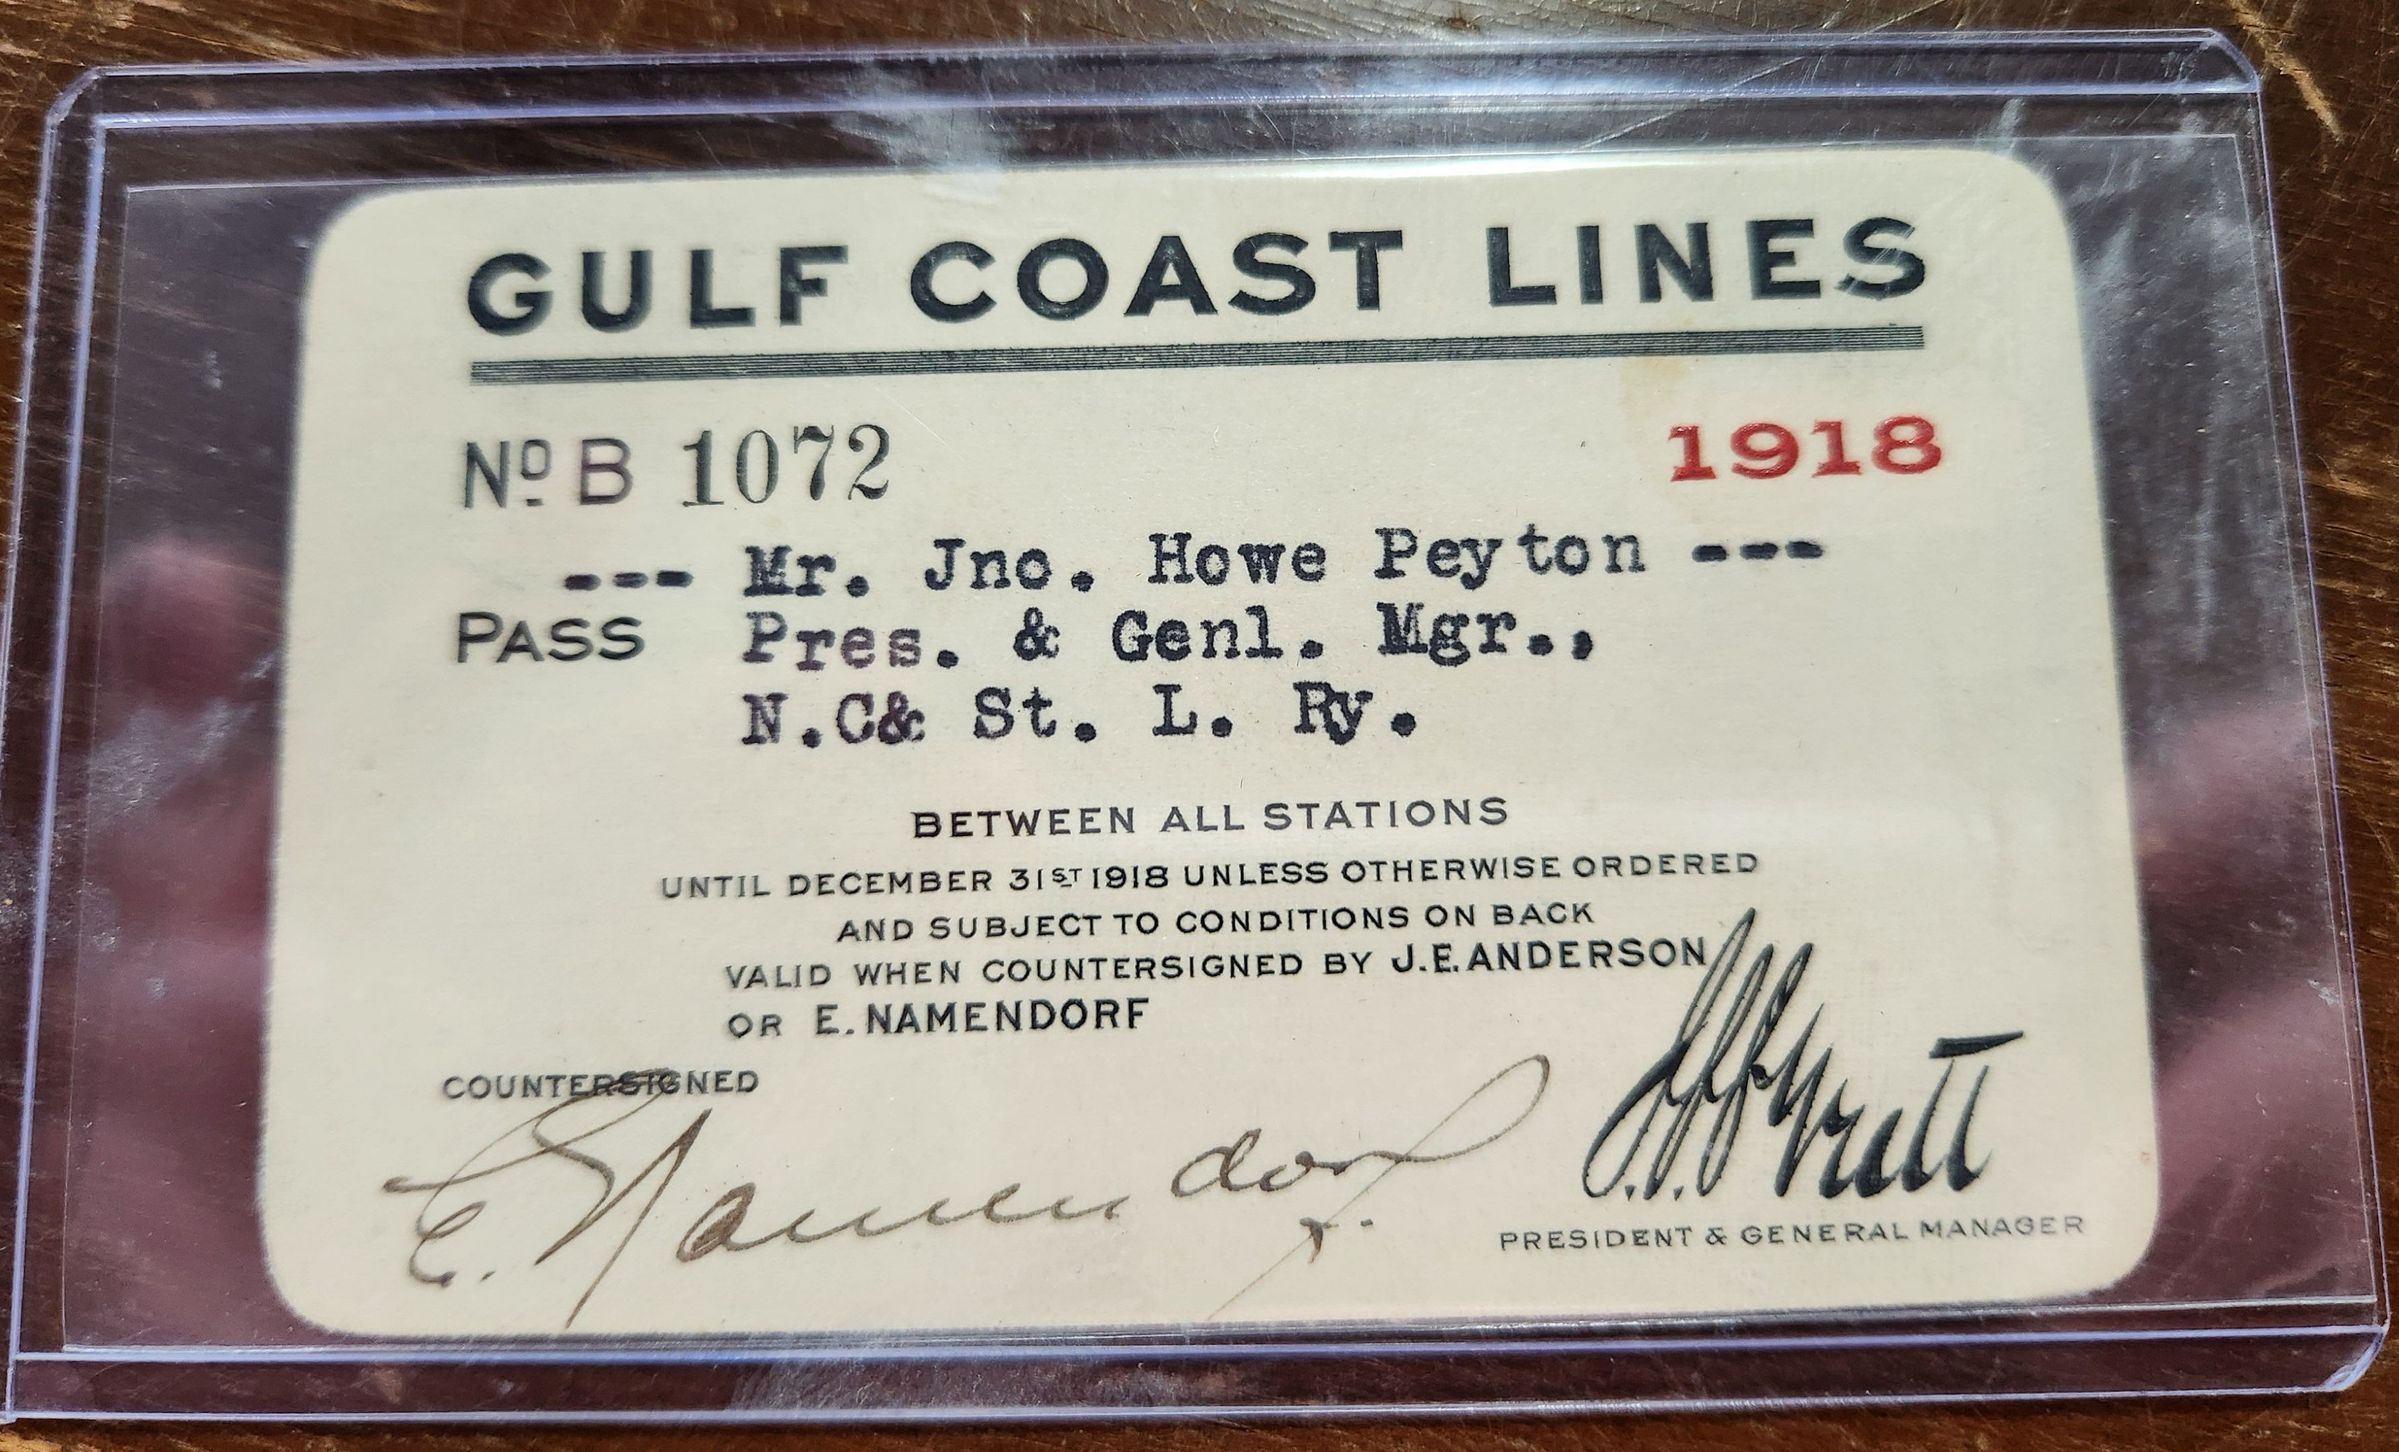 GULF COAST LINES
Nº B 1072 1918
--- Mr. Jno. Howe Peyton ---
PASS Pres. & Genl. Mgr.,
N.C& St. L. Ry.
BETWEEN ALL STATIONS
UNTIL DECEMBER 31ST 1918 UNLESS OTHERWISE ORDERED
AND SUBJECT TO CONDITIONS ON BACK
VALID WHEN COUNTERSIGNED BY J.E. ANDERSON
OR E. NAMENDORF
COUNTERSIGNED
E. Namendorf
PRESIDENT & GENERAL MANAGER